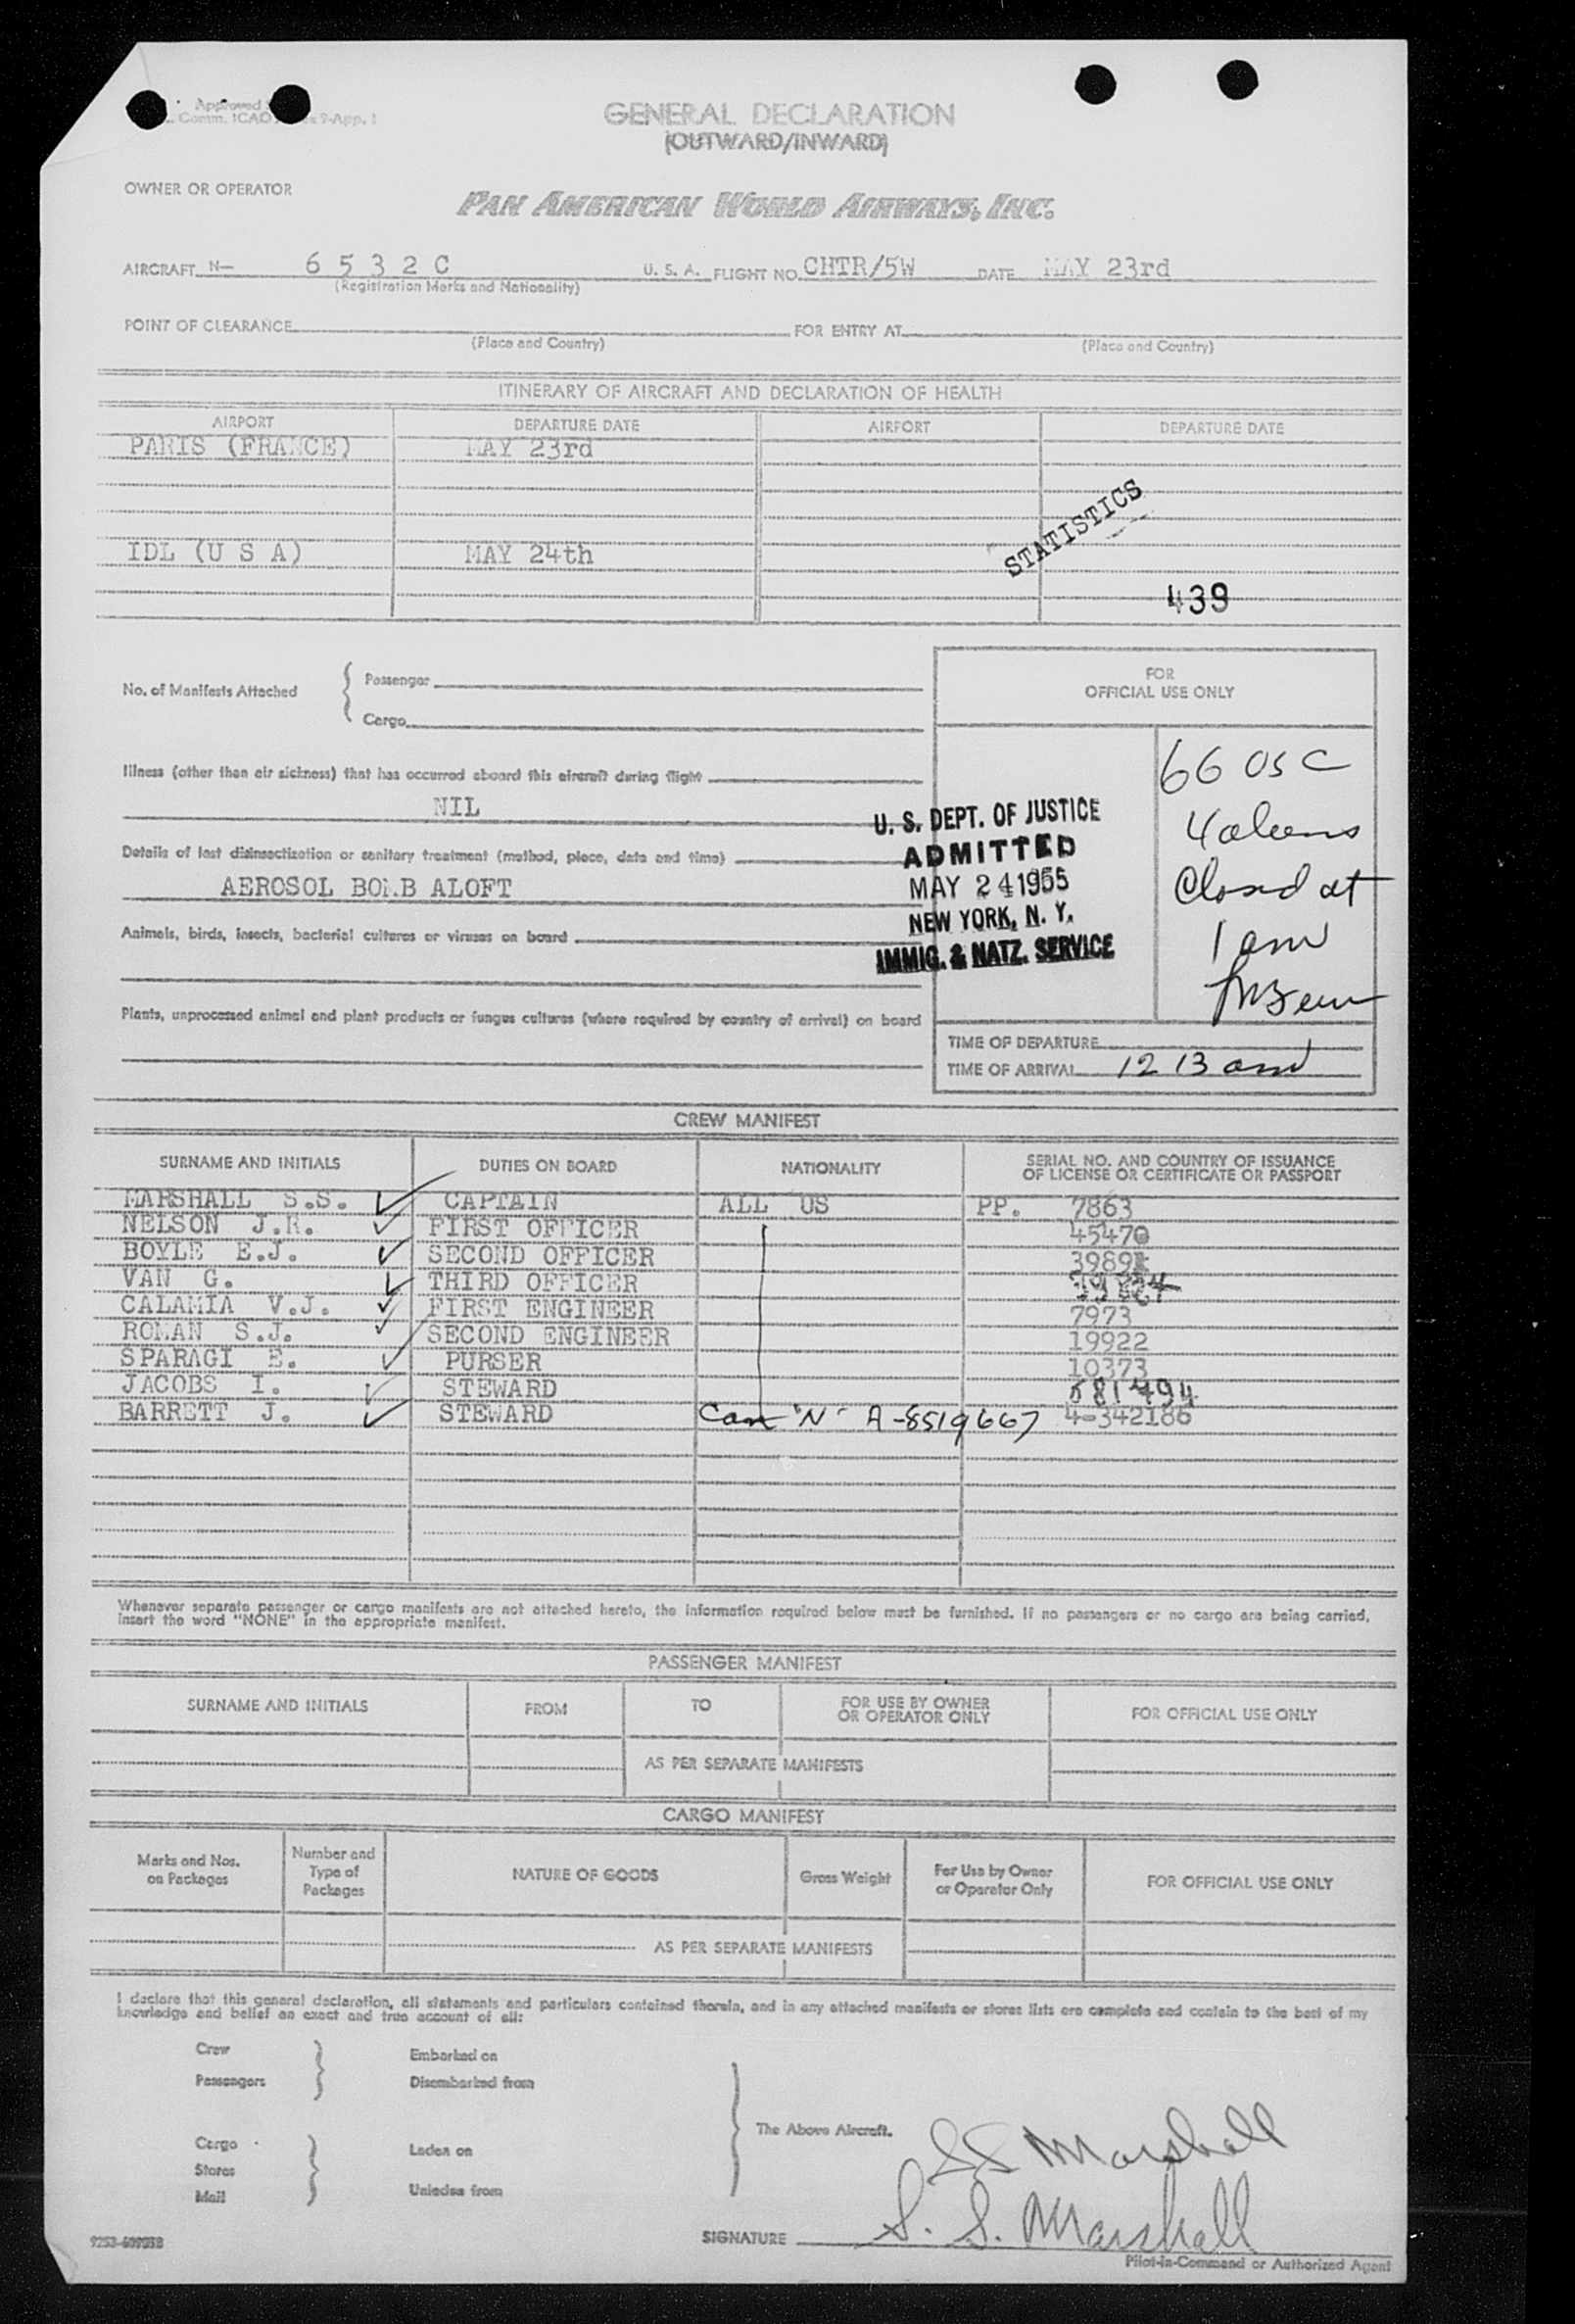 Approved
Comm. ICAO 9-App. 1
GENERAL DECLARATION
(OUTWARD/INWARD)
OWNER OR OPERATOR
PAN AMERICAN WORLD AIRWAYS, INC.
AIRCRAFT N— 6 5 3 2 C U. S. A. FLIGHT NO. CHTR/5W DATE MAY 23rd
(Registration Marks and Nationality)
POINT OF CLEARANCE FOR ENTRY AT
(Place and Country) (Place and Country)
ITINERARY OF AIRCRAFT AND DECLARATION OF HEALTH
AIRPORT DEPARTURE DATE AIRPORT DEPARTURE DATE
PARIS (FRANCE) MAY 23rd
STATISTICS
IDL (U S A) MAY 24th
439
FOR
OFFICIAL USE ONLY
No. of Manifests Attached
Passenger
Cargo
66 USC
4 aliens
Closed at
1 am
Illness (other than air sickness) that has occurred aboard this aircraft during flight
NIL
U. S. DEPT. OF JUSTICE
ADMITTED
MAY 24 1955
NEW YORK, N. Y.
IMMIG. & NATZ. SERVICE
Details of last disinsectization or sanitary treatment (method, place, date and time)
AEROSOL BOMB ALOFT
Animals, birds, insects, bacterial cultures or viruses on board
Plants, unprocessed animal and plant products or fungus cultures (where required by country of arrival) on board
TIME OF DEPARTURE
TIME OF ARRIVAL 12 13 am
CREW MANIFEST
SURNAME AND INITIALS DUTIES ON BOARD NATIONALITY SERIAL NO. AND COUNTRY OF ISSUANCE
OF LICENSE OR CERTIFICATE OR PASSPORT
MARSHALL S.S. CAPTAIN ALL US PP. 7863
NELSON J.R. FIRST OFFICER 45470
BOYLE E.J. SECOND OFFICER
VAN G. THIRD OFFICER
CALAMIA V.J. FIRST ENGINEER 7973
ROMAN S.J. SECOND ENGINEER 19922
SPARAGI E. PURSER 10373
JACOBS I. STEWARD 581794
BARRETT J. STEWARD Can "N" A-8519667 4-342186
Whenever separate passenger or cargo manifests are not attached hereto, the information required below must be furnished. If no passengers or no cargo are being carried,
insert the word "NONE" in the appropriate manifest.
PASSENGER MANIFEST
SURNAME AND INITIALS FROM TO FOR USE BY OWNER
OR OPERATOR ONLY FOR OFFICIAL USE ONLY
AS PER SEPARATE MANIFESTS
CARGO MANIFEST
Marks and Nos.
on Packages
Number and
Type of
Packages
NATURE OF GOODS
Gross Weight
For Use by Owner
or Operator Only
FOR OFFICIAL USE ONLY
AS PER SEPARATE MANIFESTS
I declare that this general declaration, all statements and particulars contained therein, and in any attached manifests or stores lists are complete and contain to the best of my
knowledge and belief an exact and true account of all:
Crew
Passengers
Embarked on
Disembarked from
Cargo
Stores
Mail
Laden on
Unladen from
The Above Aircraft.
SS Marshall
SIGNATURE S. S. Marshall
Pilot-in-Command or Authorized Agent